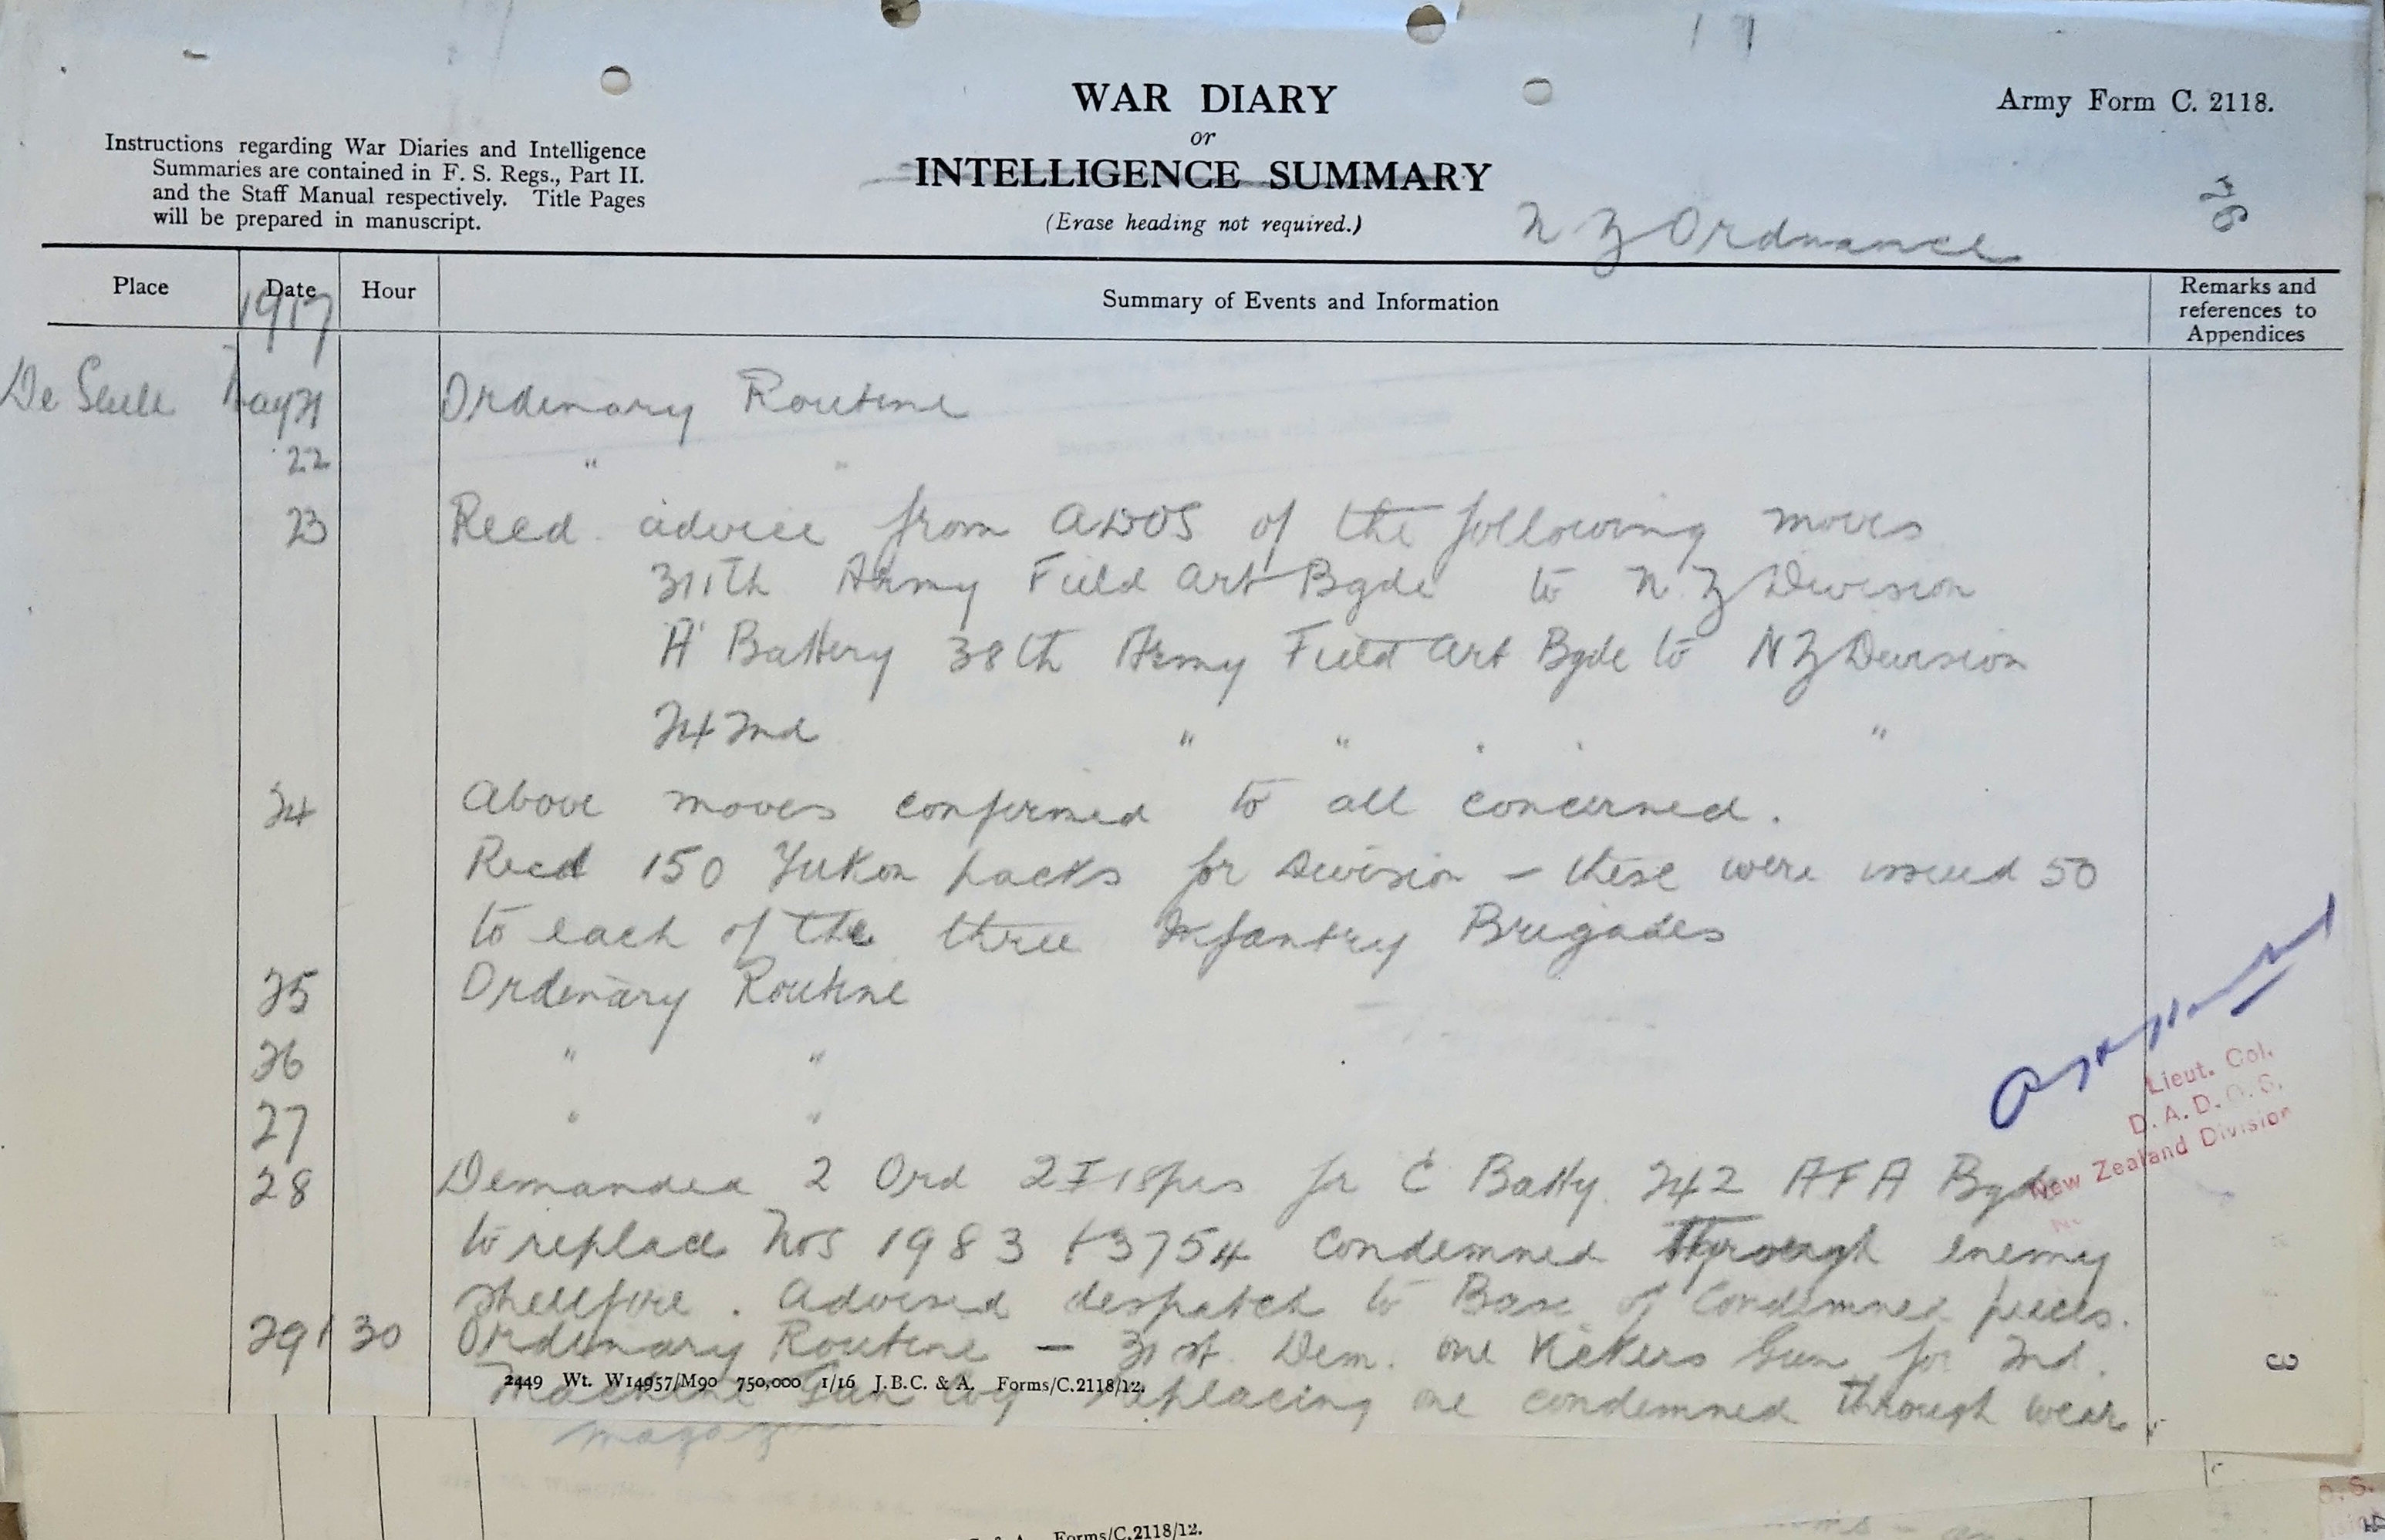 WAR DIARY
or
INTELLIGENCE SUMMARY
(Erase heading not required.)
Army Form C. 2118.
Instructions regarding War Diaries and Intelligence
Summaries are contained in F. S. Regs., Part II.
and the Staff Manual respectively. Title Pages
will be prepared in manuscript.
N Z Ordnance
Place Date Hour Summary of Events and Information Remarks and references to Appendices
1917
De Seule May 21 Ordinary Routine
22 " "
23 Recd advice from ADOS of the following moves
311th Army Field Art Bgde to N Z Division
'A' Battery 38th Army Field Art Bgde to N Z Division
242nd " " " " "
24 Above moves confirmed to all concerned.
Recd 150 Yukon packs for Division - these were issued 50
to each of the three Infantry Brigades
25 Ordinary Routine
26 " "
27 " "
28 Demanded 2 Ord 18prs for C Batty. 242 AFA Bgde
to replace Nos 1983 + 3754 condemned through enemy
shellfire. Advised despatch to Base of condemned pieces.
29 + 30 Ordinary Routine - 31st. Dem. one Vickers Gun for 2nd.
Machine Gun Coy replacing one condemned through wear
Lieut. Col.
D. A. D. O. S.
New Zealand Division
3
2449 Wt. W14957/M90 750,000 1/16 J.B.C. & A. Forms/C.2118/12.
Forms/C.2118/12.